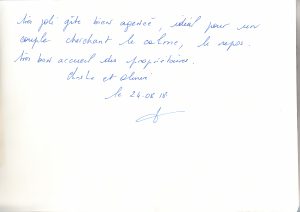 très joli gîte bien agencé, idéal pour un
couple cherchant le calme, le repos.
très bon accueil des propriétaires.
et
le 24.08.18